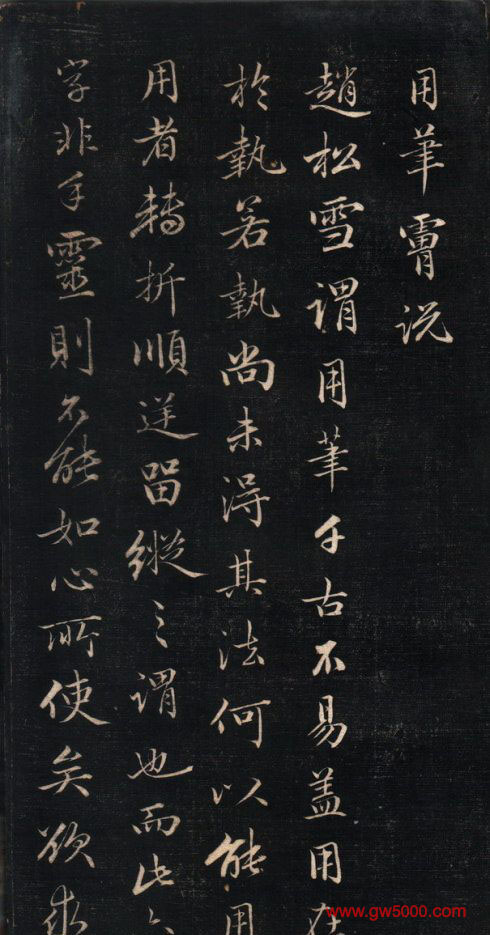 用筆膚说
趙松雪謂用筆千古不易盖用在
於執若執尚未得其法何以能用
用者轉折順逆留縱之謂也而此六
字非手靈則不能如心所使矣欲求
www.gw5000.com